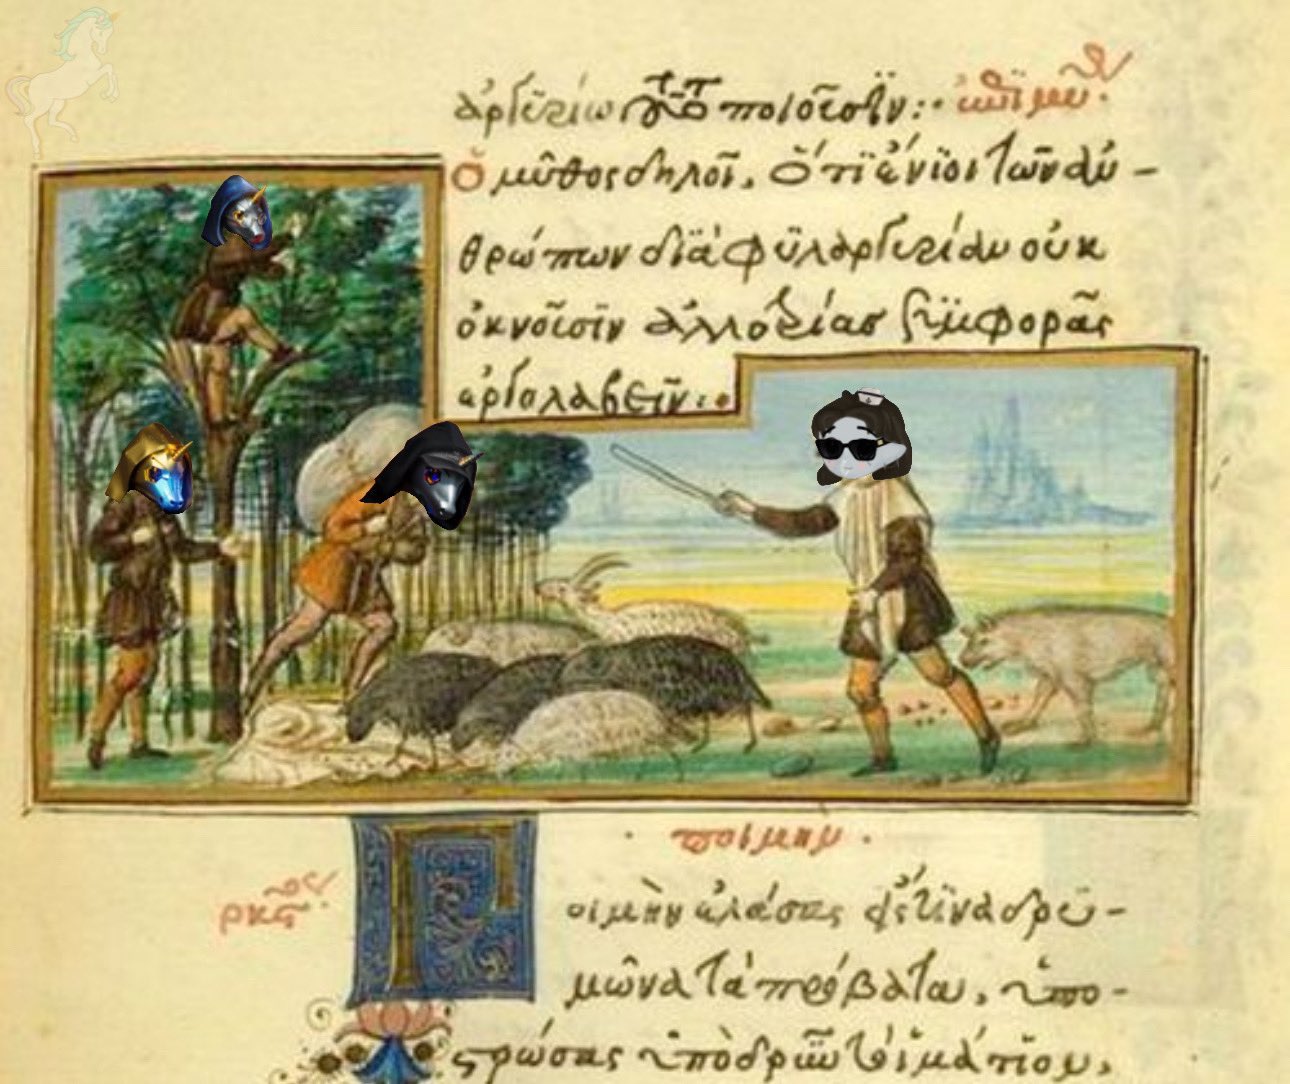 ἀργυρίῳ τοῦτο ποιοῦσιν:· ἐπιμύθ
Ὁ μῦθος δηλοῖ, ὅτι ἔνιοι τῶν ἀν-
θρώπων διὰ φιλαργυρίαν οὐκ
ὀκνοῦσιν ἀλλοτρίας συμφορᾶς
ἐργολαβεῖν:·
ποιμήν.
Ποιμὴν ἐλάσας εἴς τινα δρυ-
μῶνα τὰ πρόβατα, ὑπο-
στρώσας ὑπὸ δρῦν τὸ ἱμάτιον,